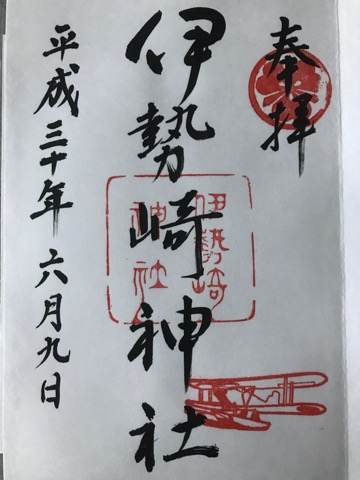 奉拝
伊勢崎神社
伊勢崎
神社
平成三十年六月九日